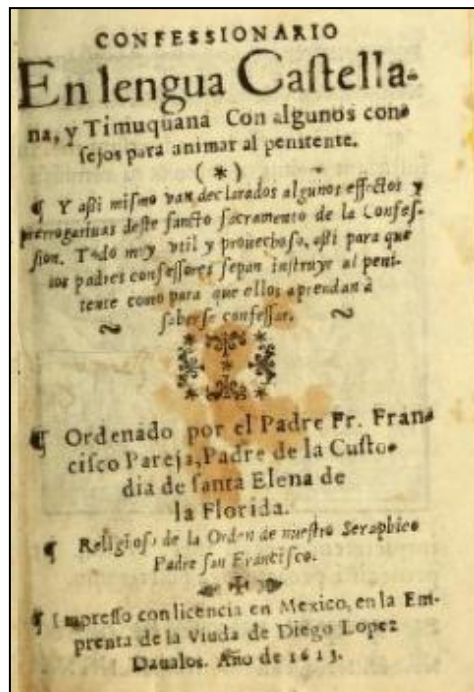 CONFESSIONARIO
En lengua Caſtella-
na, y Timuquana Con algunos con-
ſejos para animar al penitente.
(*)
¶ Y aßi miſmo van declarados algunos effectos y
prerrogatiuas deſte ſancto ſacramento de la Confeſ-
ſion. Todo muy vtil y prouechoſo, aßi para que
los padres confeſſores ſepan inſtruyr al peni-
tente como para que ellos aprendan à
ſaberſe confeſſar.
¶ Ordenado por el Padre Fr. Fran-
ciſco Pareja, Padre de la Cuſto-
dia de ſanta Elena de
la Florida.
¶ Religioſo de la Orden de nueſtro Seraphico
Padre ſan Franciſco.
¶ Impreſſo con licencia en Mexico, en la Em-
prenta de la Viuda de Diego Lopez
Daualos. Año de 1613.